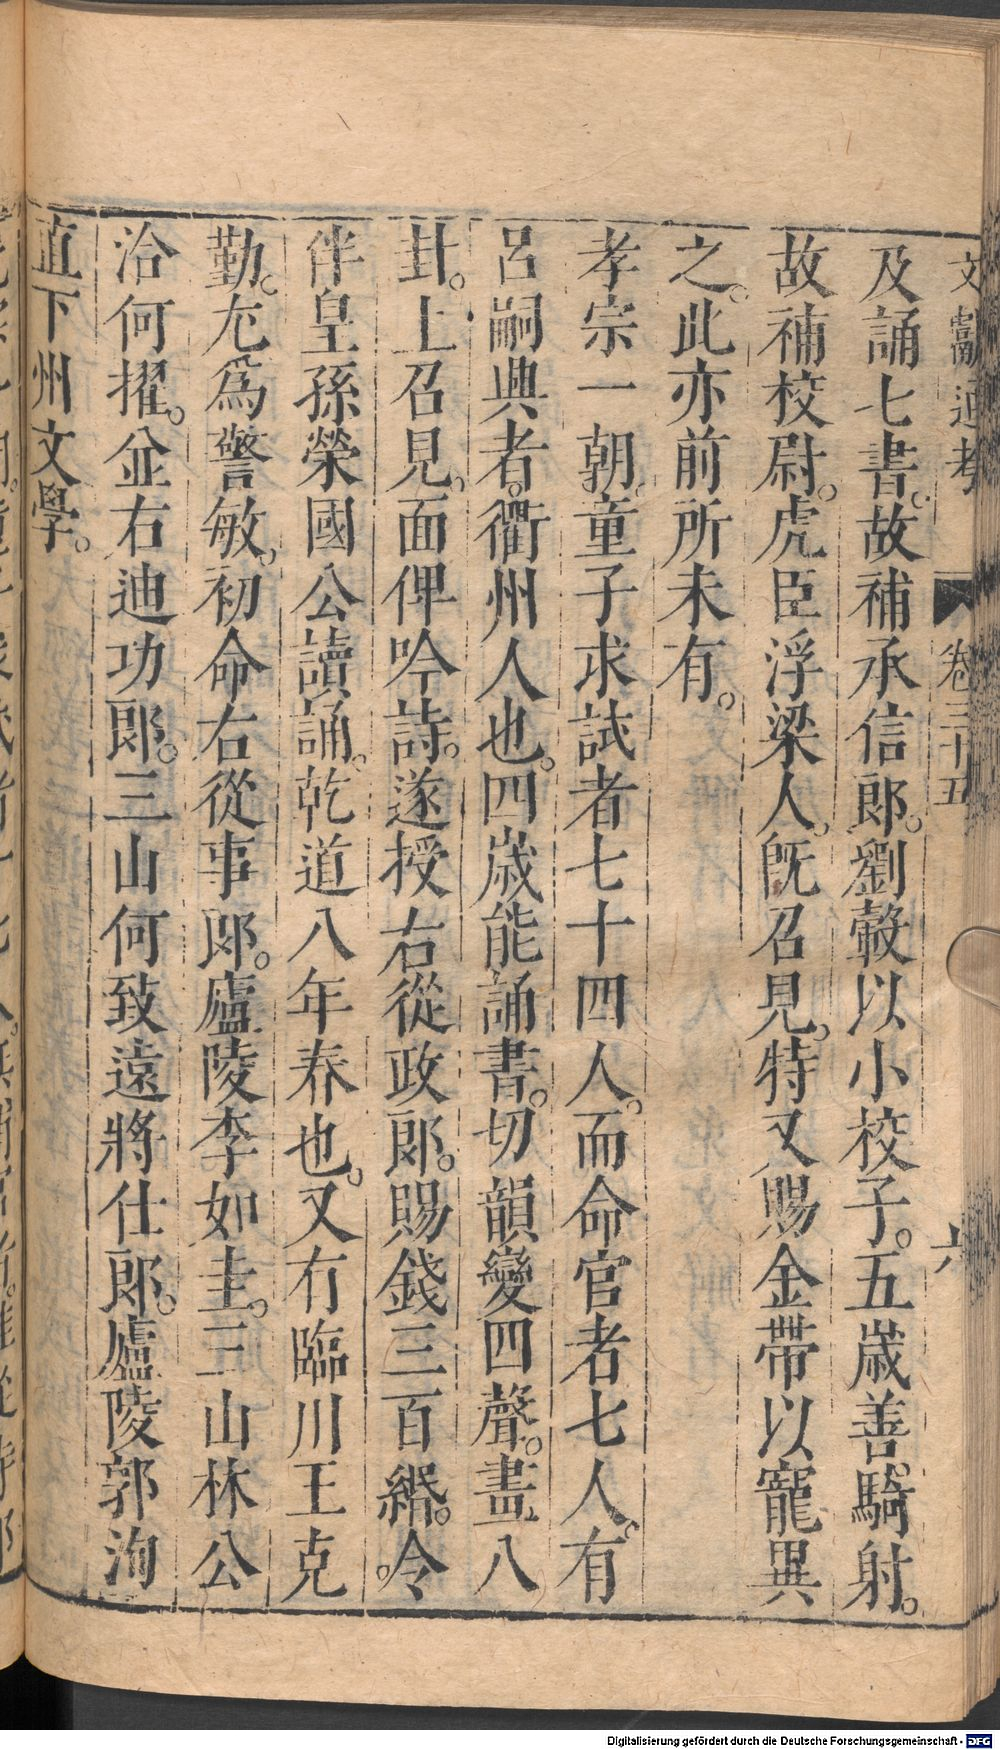 文獻通考 卷三十五 六
及誦七書。故補承信郎。劉轂以小校子。五歲善騎射。
故補校尉。虎臣浮梁人。旣召見。特又賜金帶以寵異
之。此亦前所未有。
孝宗一朝。童子求試者七十四人。而命官者七人。有
呂嗣興者。衢州人也。四歲能誦書。切韻變四聲。畫八
卦。上召見。面俾吟詩。遂授右從政郎。賜錢三百緡。令
伴皇孫榮國公讀誦。乾道八年春也。又有臨川王克
勤。尤爲警敏。初命右從事郎。廬陵李如圭。三山林公
洽何擢。並右迪功郎。三山何致遠將仕郎。廬陵郭洵
直下州文學。
Digitalisierung gefördert durch die Deutsche Forschungsgemeinschaft - DFG